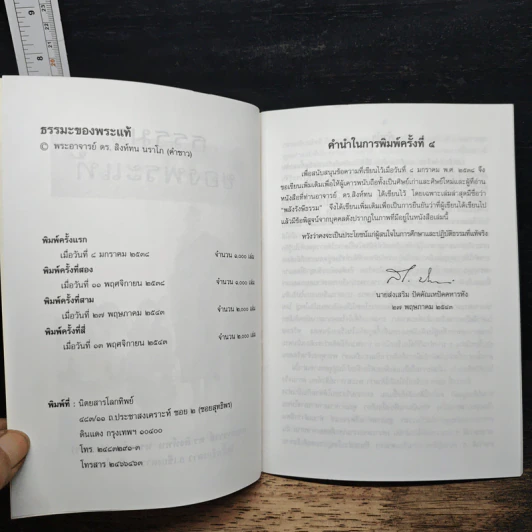 ธรรมะของพระแท้
© พระอาจารย์ ดร. สิงห์ทน นราโภ (คำซาว)
พิมพ์ครั้งแรก
เมื่อวันที่ ๘ มกราคม ๒๕๓๘ จำนวน ๑,๐๐๐ เล่ม
พิมพ์ครั้งที่สอง
เมื่อวันที่ ๑๑ พฤศจิกายน ๒๕๓๘ จำนวน ๑,๐๐๐ เล่ม
พิมพ์ครั้งที่สาม
เมื่อวันที่ ๒๗ พฤษภาคม ๒๕๔๓ จำนวน ๒,๐๐๐ เล่ม
พิมพ์ครั้งที่สี่
เมื่อวันที่ ๑๓ พฤศจิกายน ๒๕๔๓ จำนวน ๒,๐๐๐ เล่ม
พิมพ์ที่ : นิตยสารโลกทิพย์
๔๘๓/๑๑ ถ.ประชาสงเคราะห์ ซอย ๒ (ซอยสุทธิพร)
ดินแดง กรุงเทพฯ ๑๐๔๐๐
โทร. ๒๔๘๓๒๙๑-๓
โทรสาร ๒๔๖๖๔๖๓
คำนำในการพิมพ์ครั้งที่ ๔
เพื่อสนับสนุนข้อความที่เขียนไว้เมื่อวันที่ ๘ มกราคม พ.ศ. ๒๕๓๘ จึง
ขอเขียนเพิ่มเติมเพื่อให้ผู้เคารพนับถือทั้งเป็นศิษย์เก่าและศิษย์ใหม่และผู้ที่อ่าน
หนังสือที่ท่านอาจารย์ ดร.สิงห์ทน ได้เขียนไว้ โดยเฉพาะเล่มล่าสุดมีชื่อว่า
"พลังรังสีธรรม" จึงได้เขียนเพิ่มเติมเพื่อเป็นการยืนยันว่าที่ผู้เขียนได้เขียนไป
แล้วมีข้อพิสูจน์จากบุคคลดังปรากฏในภาพที่มีอยู่ในหนังสือเล่มนี้
หวังว่าคงจะเป็นประโยชน์แก่ผู้สนใจในการศึกษาและปฏิบัติธรรมที่แท้จริง
นายส่งเสริม
๒๗ พฤษภาคม ๒๕๔๓
9
8